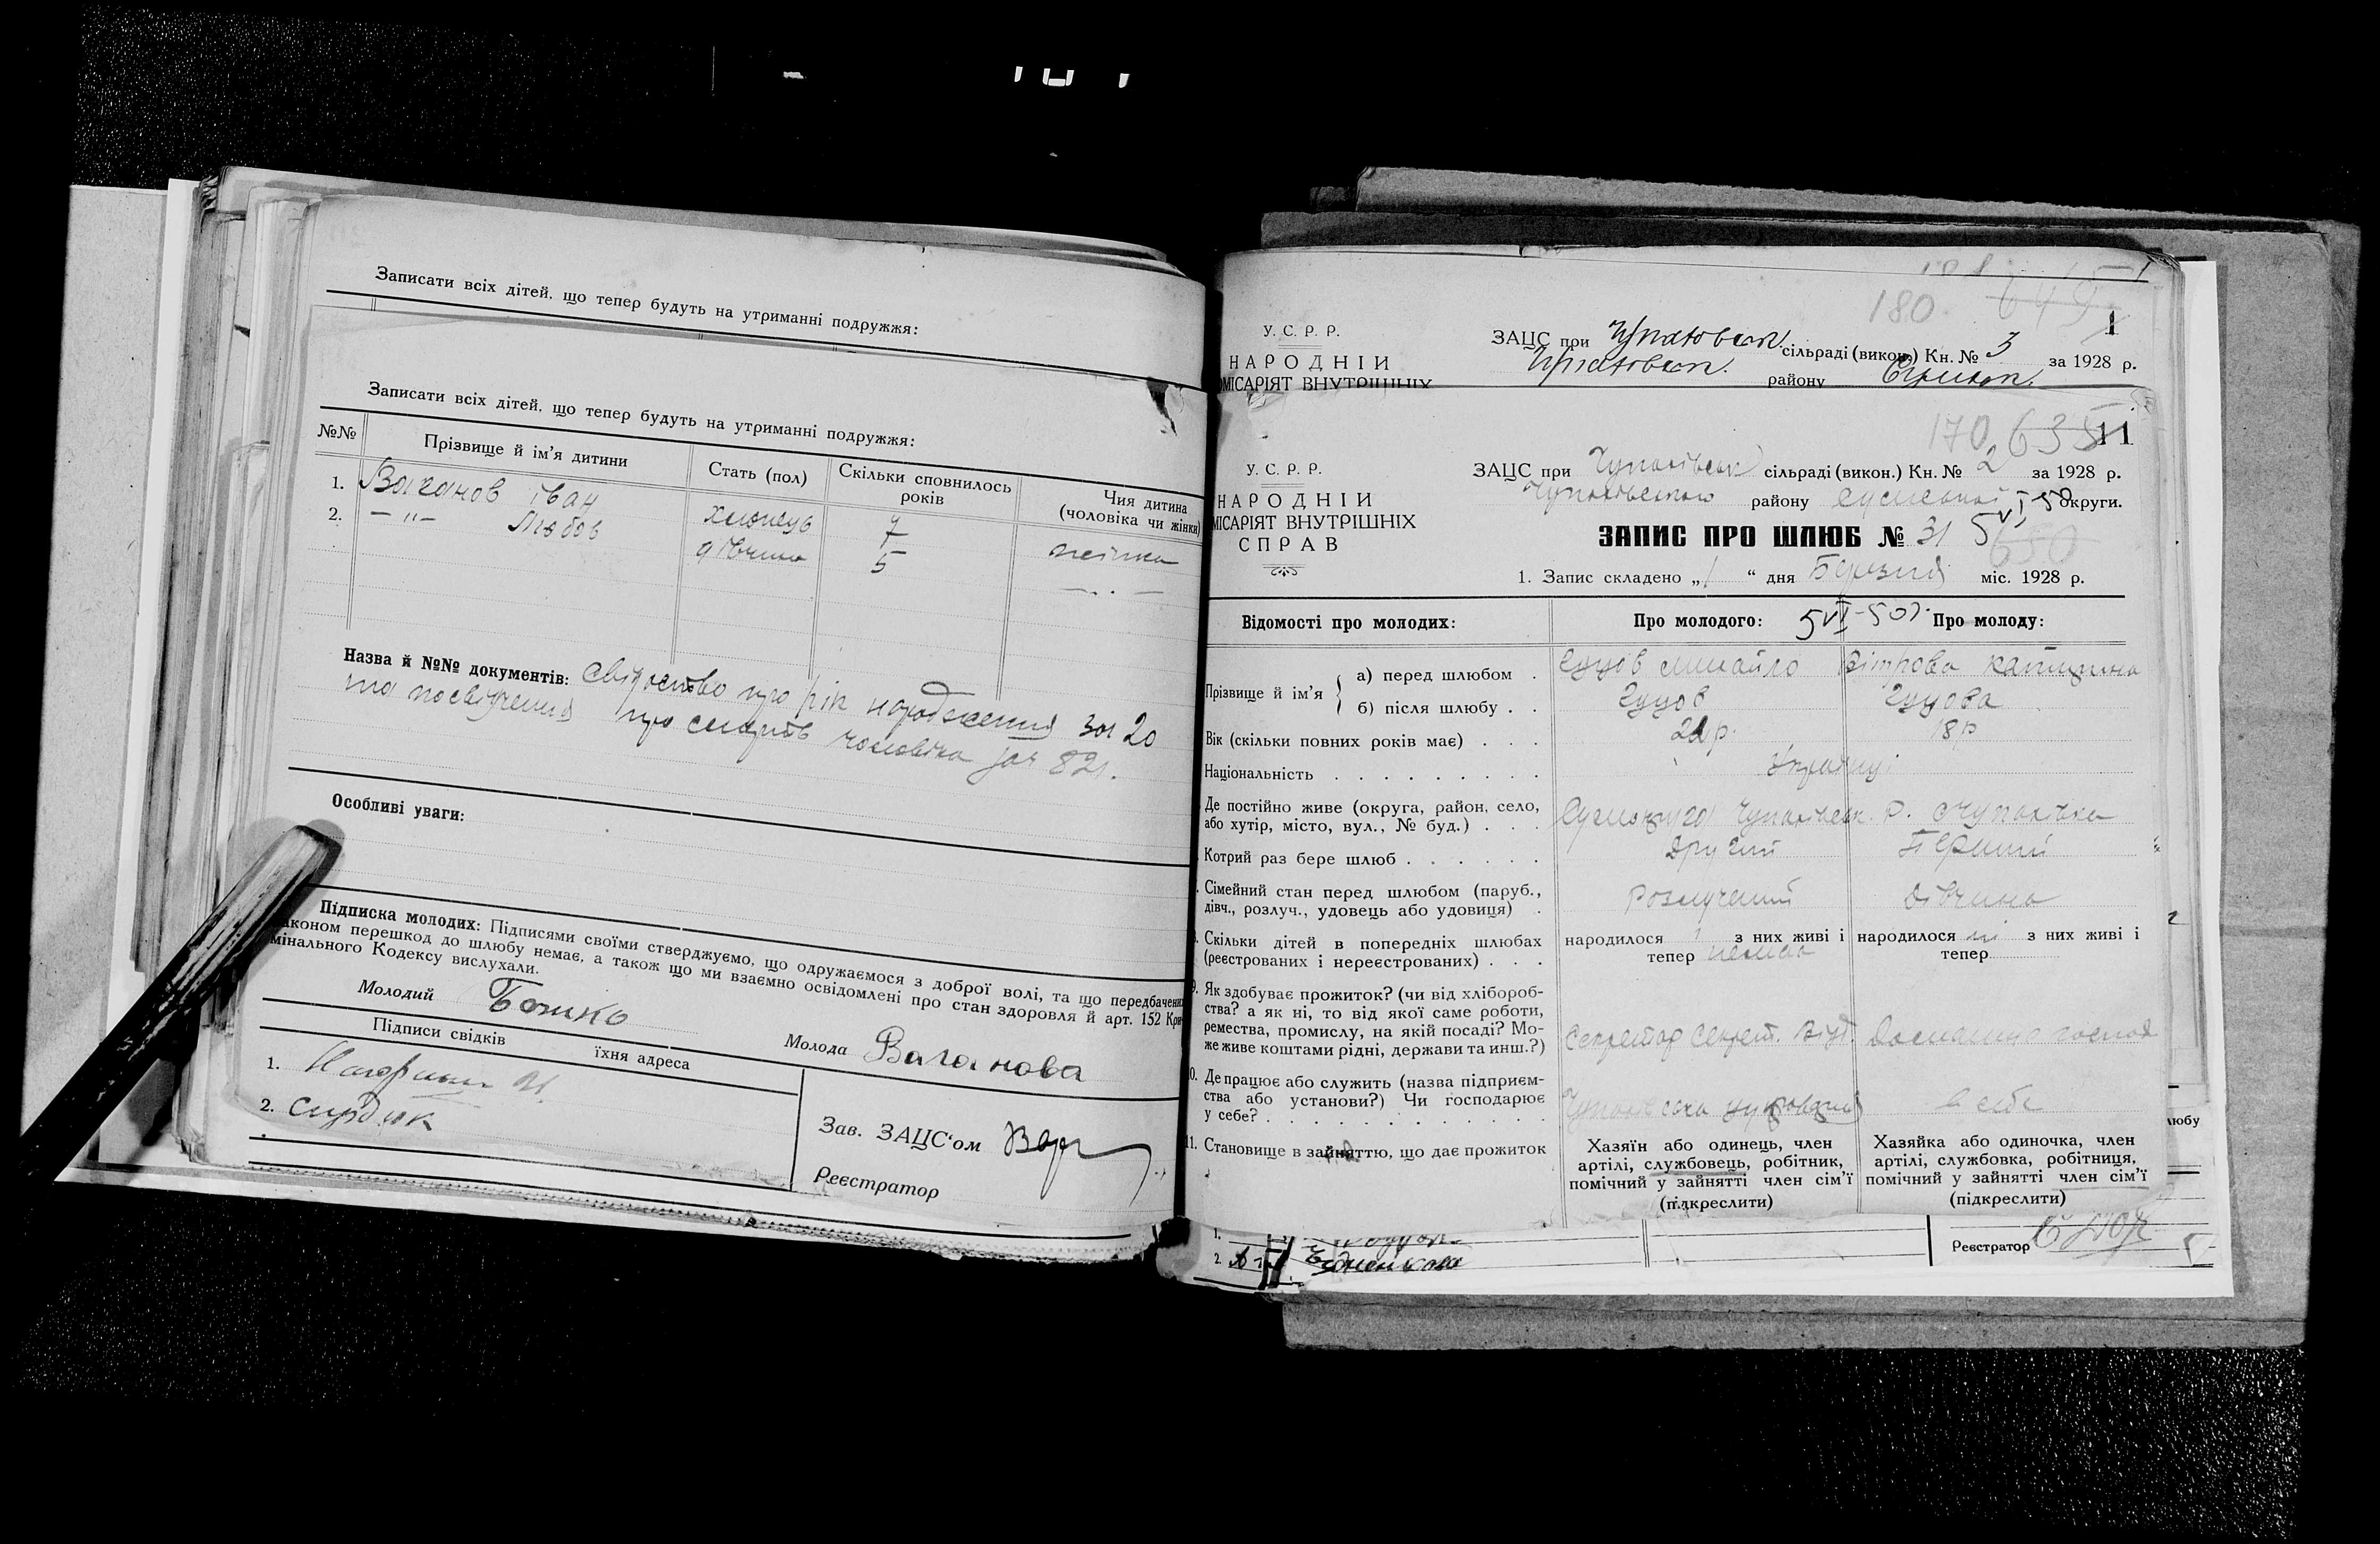 Записати всіх дітей, що тепер будуть на утриманні подружжя:
Записати всіх дітей, що тепер будуть на утриманні подружжя:
№№ Прізвище й ім'я дитини Стать (пол) Скільки сповнилось років Чия дитина (чоловіка чи жінки)
1. Ваганов Іван хлопець 7 жінки
2. —"— Любов дівчина 5
Назва й №№ документів: свідоство про рік народження за 20
та посвідчення про смерть чоловіка за ч 821.
Особливі уваги:
Підписка молодих: Підписями своїми стверджуємо, що одружаємося з доброї волі, та що передбачених
законом перешкод до шлюбу немає, а також що ми взаємно освідомлені про стан здоровля й арт. 152 Кри-
мінального Кодексу вислухали.
Молодий Божко Молода Ваганова
Підписи свідків їхня адреса
1.
2. Сирдюк
Зав. ЗАЦС'ом
Реєстратор
180
У. С. Р. Р.
НАРОДНІЙ
ОМІСАРІЯТ ВНУТРІШНІХ
ЗАЦС при сільраді (викон.) Кн. № 3 за 1928 р.
району
1
170 635 11
У. С. Р. Р.
НАРОДНІЙ
МІСАРІЯТ ВНУТРІШНІХ
СПРАВ
ЗАЦС при Чупахівськ сільраді (викон.) Кн. № 2 за 1928 р.
Чупахівського району Сумської округи.
ЗАПИС ПРО ШЛЮБ № 31
650
1. Запис складено „1“ дня Березня міс. 1928 р.
Відомості про молодих: Про молодого: Про молоду:
Прізвище й ім'я
а) перед шлюбом . Гуцов Михайло Вітрова Катерина
б) після шлюбу . . Гуцов Гуцова
Вік (скільки повних років має) . . . 18 р
Національність . . . . . . . . . Українці
Де постійно живе (округа, район, село,
або хутір, місто, вул., № буд.) . . . Чупахівськ. р. с Чупахівка
Котрий раз бере шлюб . . . . . . Другий Перший
Сімейний стан перед шлюбом (паруб.,
дівч., розлуч., удовець або удовиця) . Розлучений дівчина
Скільки дітей в попередніх шлюбах
(реєстрованих і нереєстрованих) . . .
народилося 1 з них живі і тепер немає
народилося ні з них живі і тепер
9. Як здобуває прожиток? (чи від хлібороб-
ства? а як ні, то від якої саме роботи,
ремества, промислу, на якій посаді? Мо-
же живе коштами рідні, держави та инш.?)
Секретар Секрет. Відд. Домашнє господ
10. Де працює або служить (назва підприєм-
ства або установи?) Чи господарює
у себе? . . . . . . . . . . . . .
в себе
11. Становище в зайняттю, що дає прожиток
Хазяїн або одинець, член
артілі, службовець, робітник,
помічний у зайнятті член сім'ї
(підкреслити)
Хазяйка або одиночка, член
артілі, службовка, робітниця,
помічний у зайнятті член сім'ї
(підкреслити)
любу
1.
2.
Реєстратор